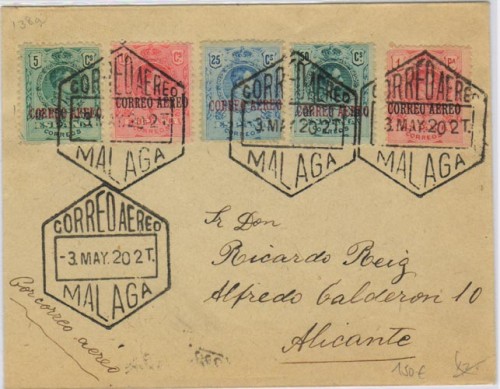 138a
5 Cs
10 Cs
25 Cs
50 Cs
1 Pa
CORREO AEREO
CORREO AEREO
CORREO AEREO
CORREO AEREO
CORREO AEREO
CORREOS
CORREO AEREO
MALAGA
CORREO AEREO
-3.MAY.20 2T.
MALAGA
CORREO AEREO
-3.MAY.20 2T.
MALAGA
CORREO AEREO
-3.MAY.20 2T.
MALAGA
Sr Don
Ricardo Reig
Alfredo Calderon 10
Alicante
Por correo aéreo
150€